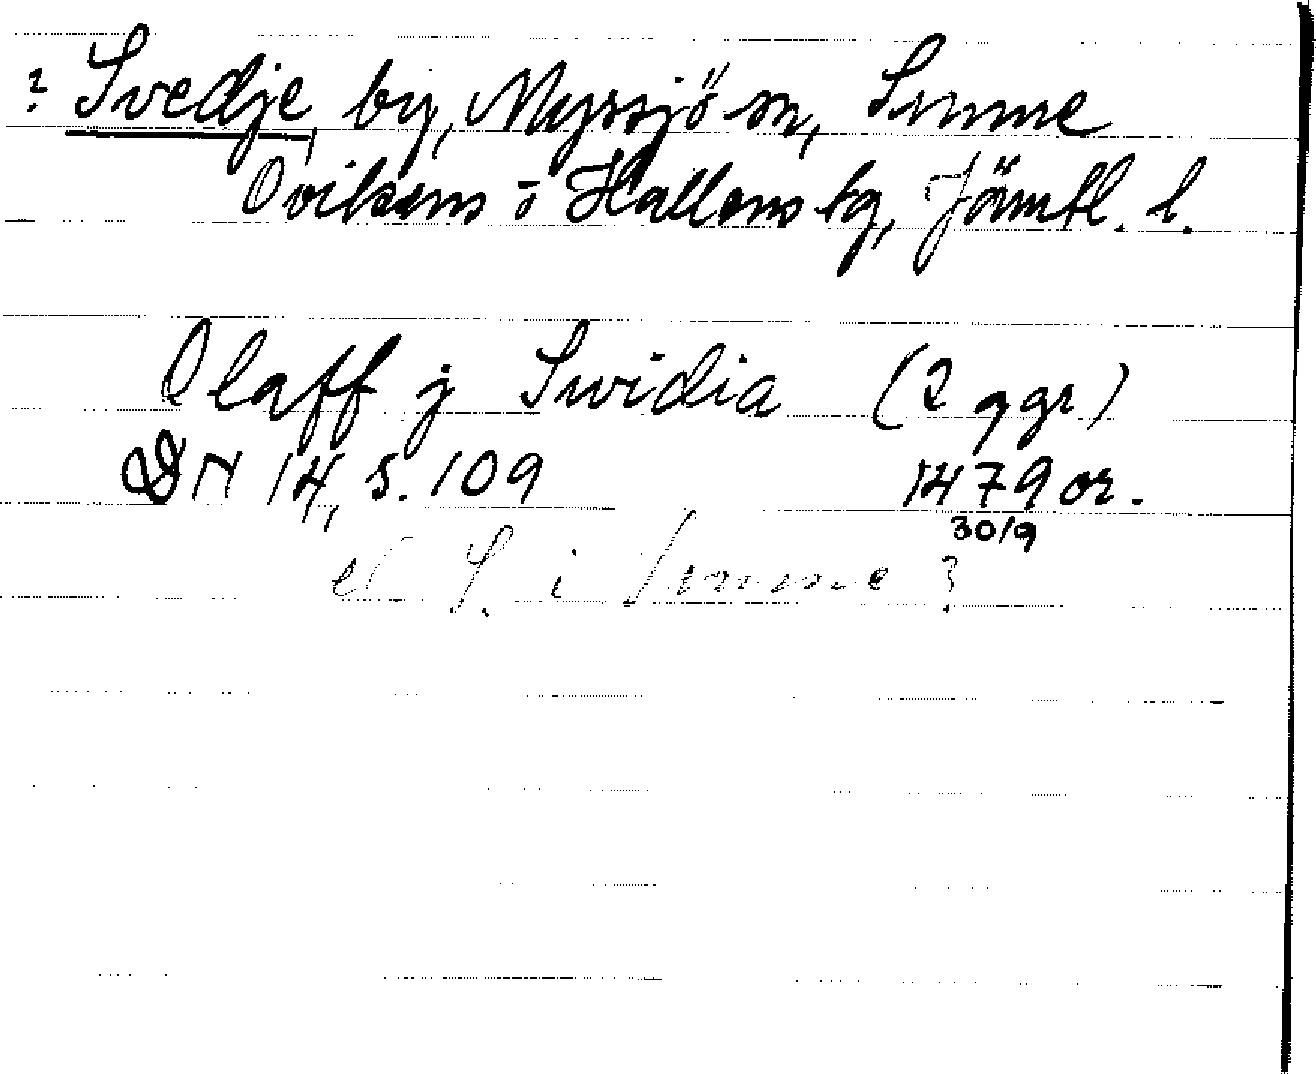 ? Svedje by, Myssjö sn, Sunne
Ovikens o Hallens tg, Jämtl. l.
Olaff j Swidia (2 ggr)
DN 14, s. 109 1479 or.
30/9
el S. i Sunne?